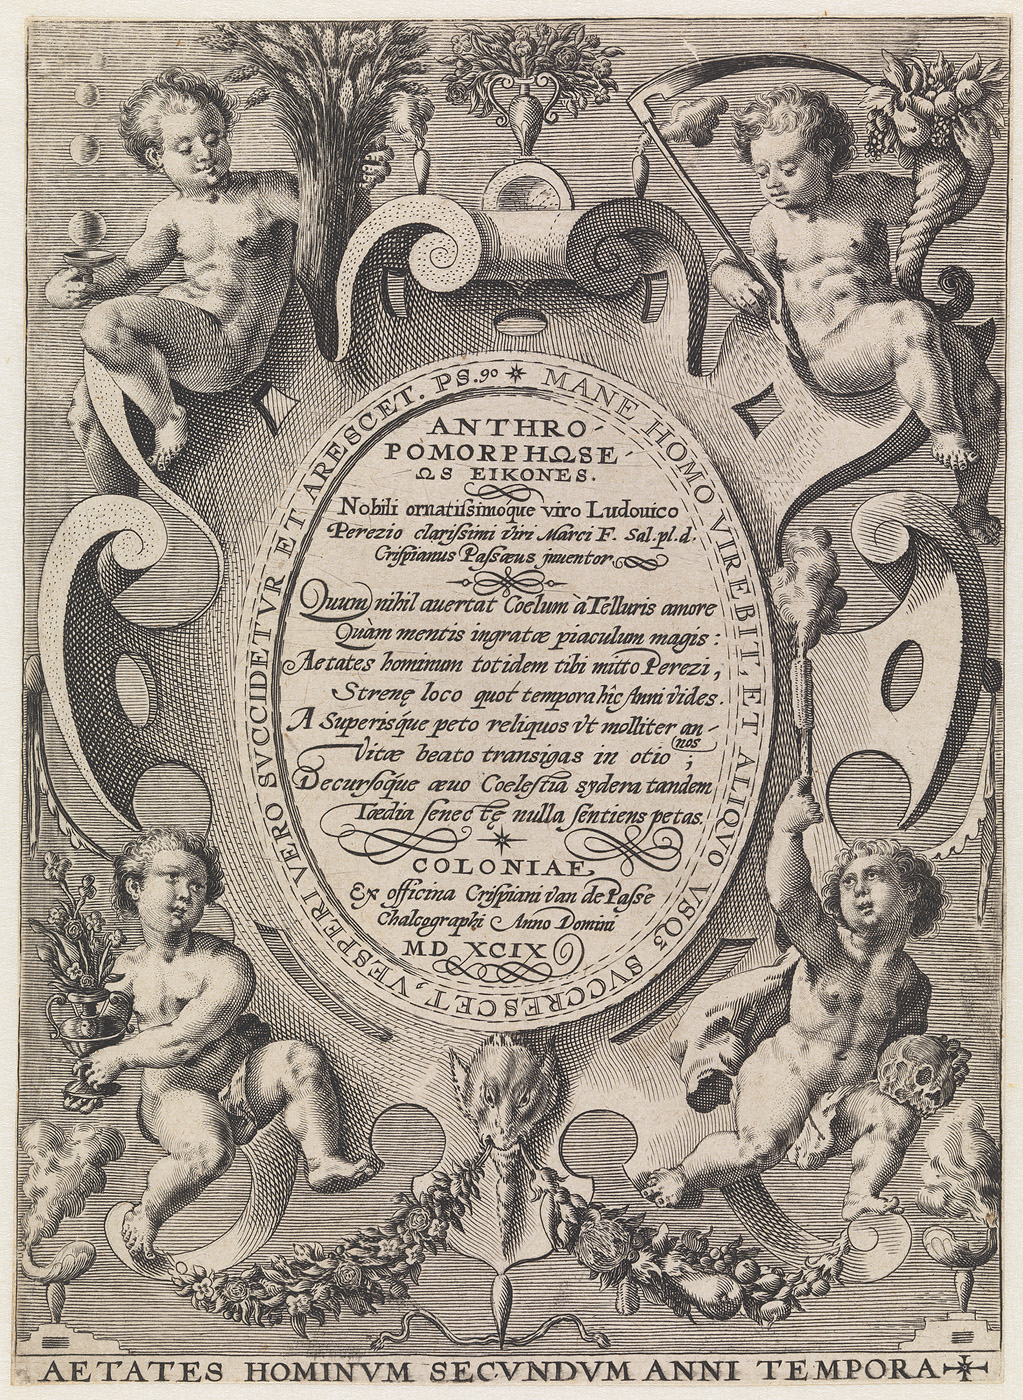 MANE HOMO VIREBIT, ET ALIQVO VSQꝪ SVCCRESCET, VESPERI VERO SVCCIDETVR ET ARESCET. PS. 90
ANTHRO-
POMORPHΩSE-
ΩS EIKONES.
Nobili ornatissimoque viro Ludouico
Perezio clarissimi viri Marci F. Sal. pl. d.
Crispianus Passæus inuentor.
Quum nihil auertat Coelum à Telluris amore
Quàm mentis ingratæ piaculum magis:
Aetates hominum totidem tibi mitto Perezi,
Strenę loco quot tempora hîc Anni vides.
A Superisq́ue peto reliquos vt molliter an-
nos
Vitæ beato transigas in otio;
Decursoq́ue æuo Coelestia sydera tandem
Tædia senectę nulla sentiens petas.
COLONIAE,
Ex officina Crispiani van de Passe
Chalcographi Anno Domini
MD XCIX
AETATES HOMINVM SECVNDVM ANNI TEMPORA